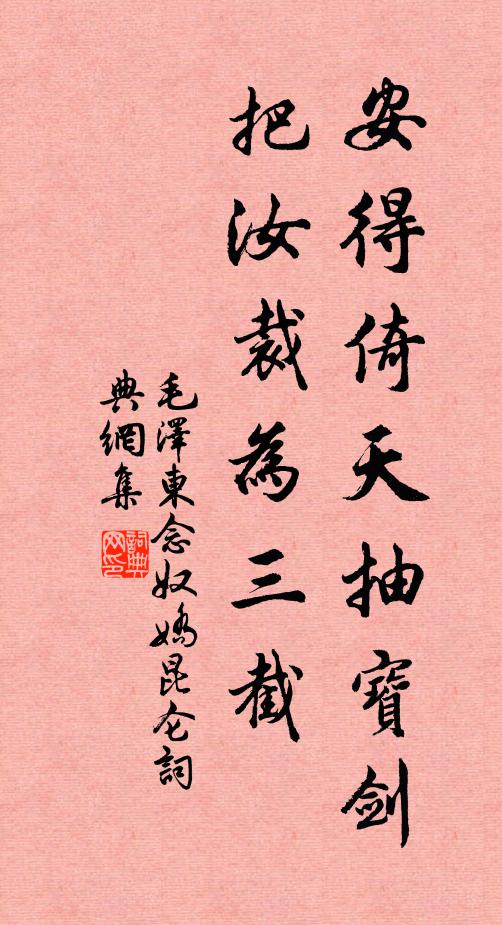 安得倚天抽寶劍
把汝裁為三截
毛澤東念奴嬌昆仑詞
典網集
詞典网印